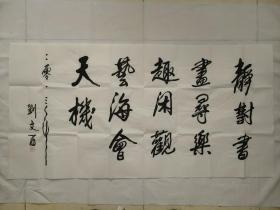 靜對書
畫尋樂
趣閑觀
藝海會
天機
二零一三
劉文西